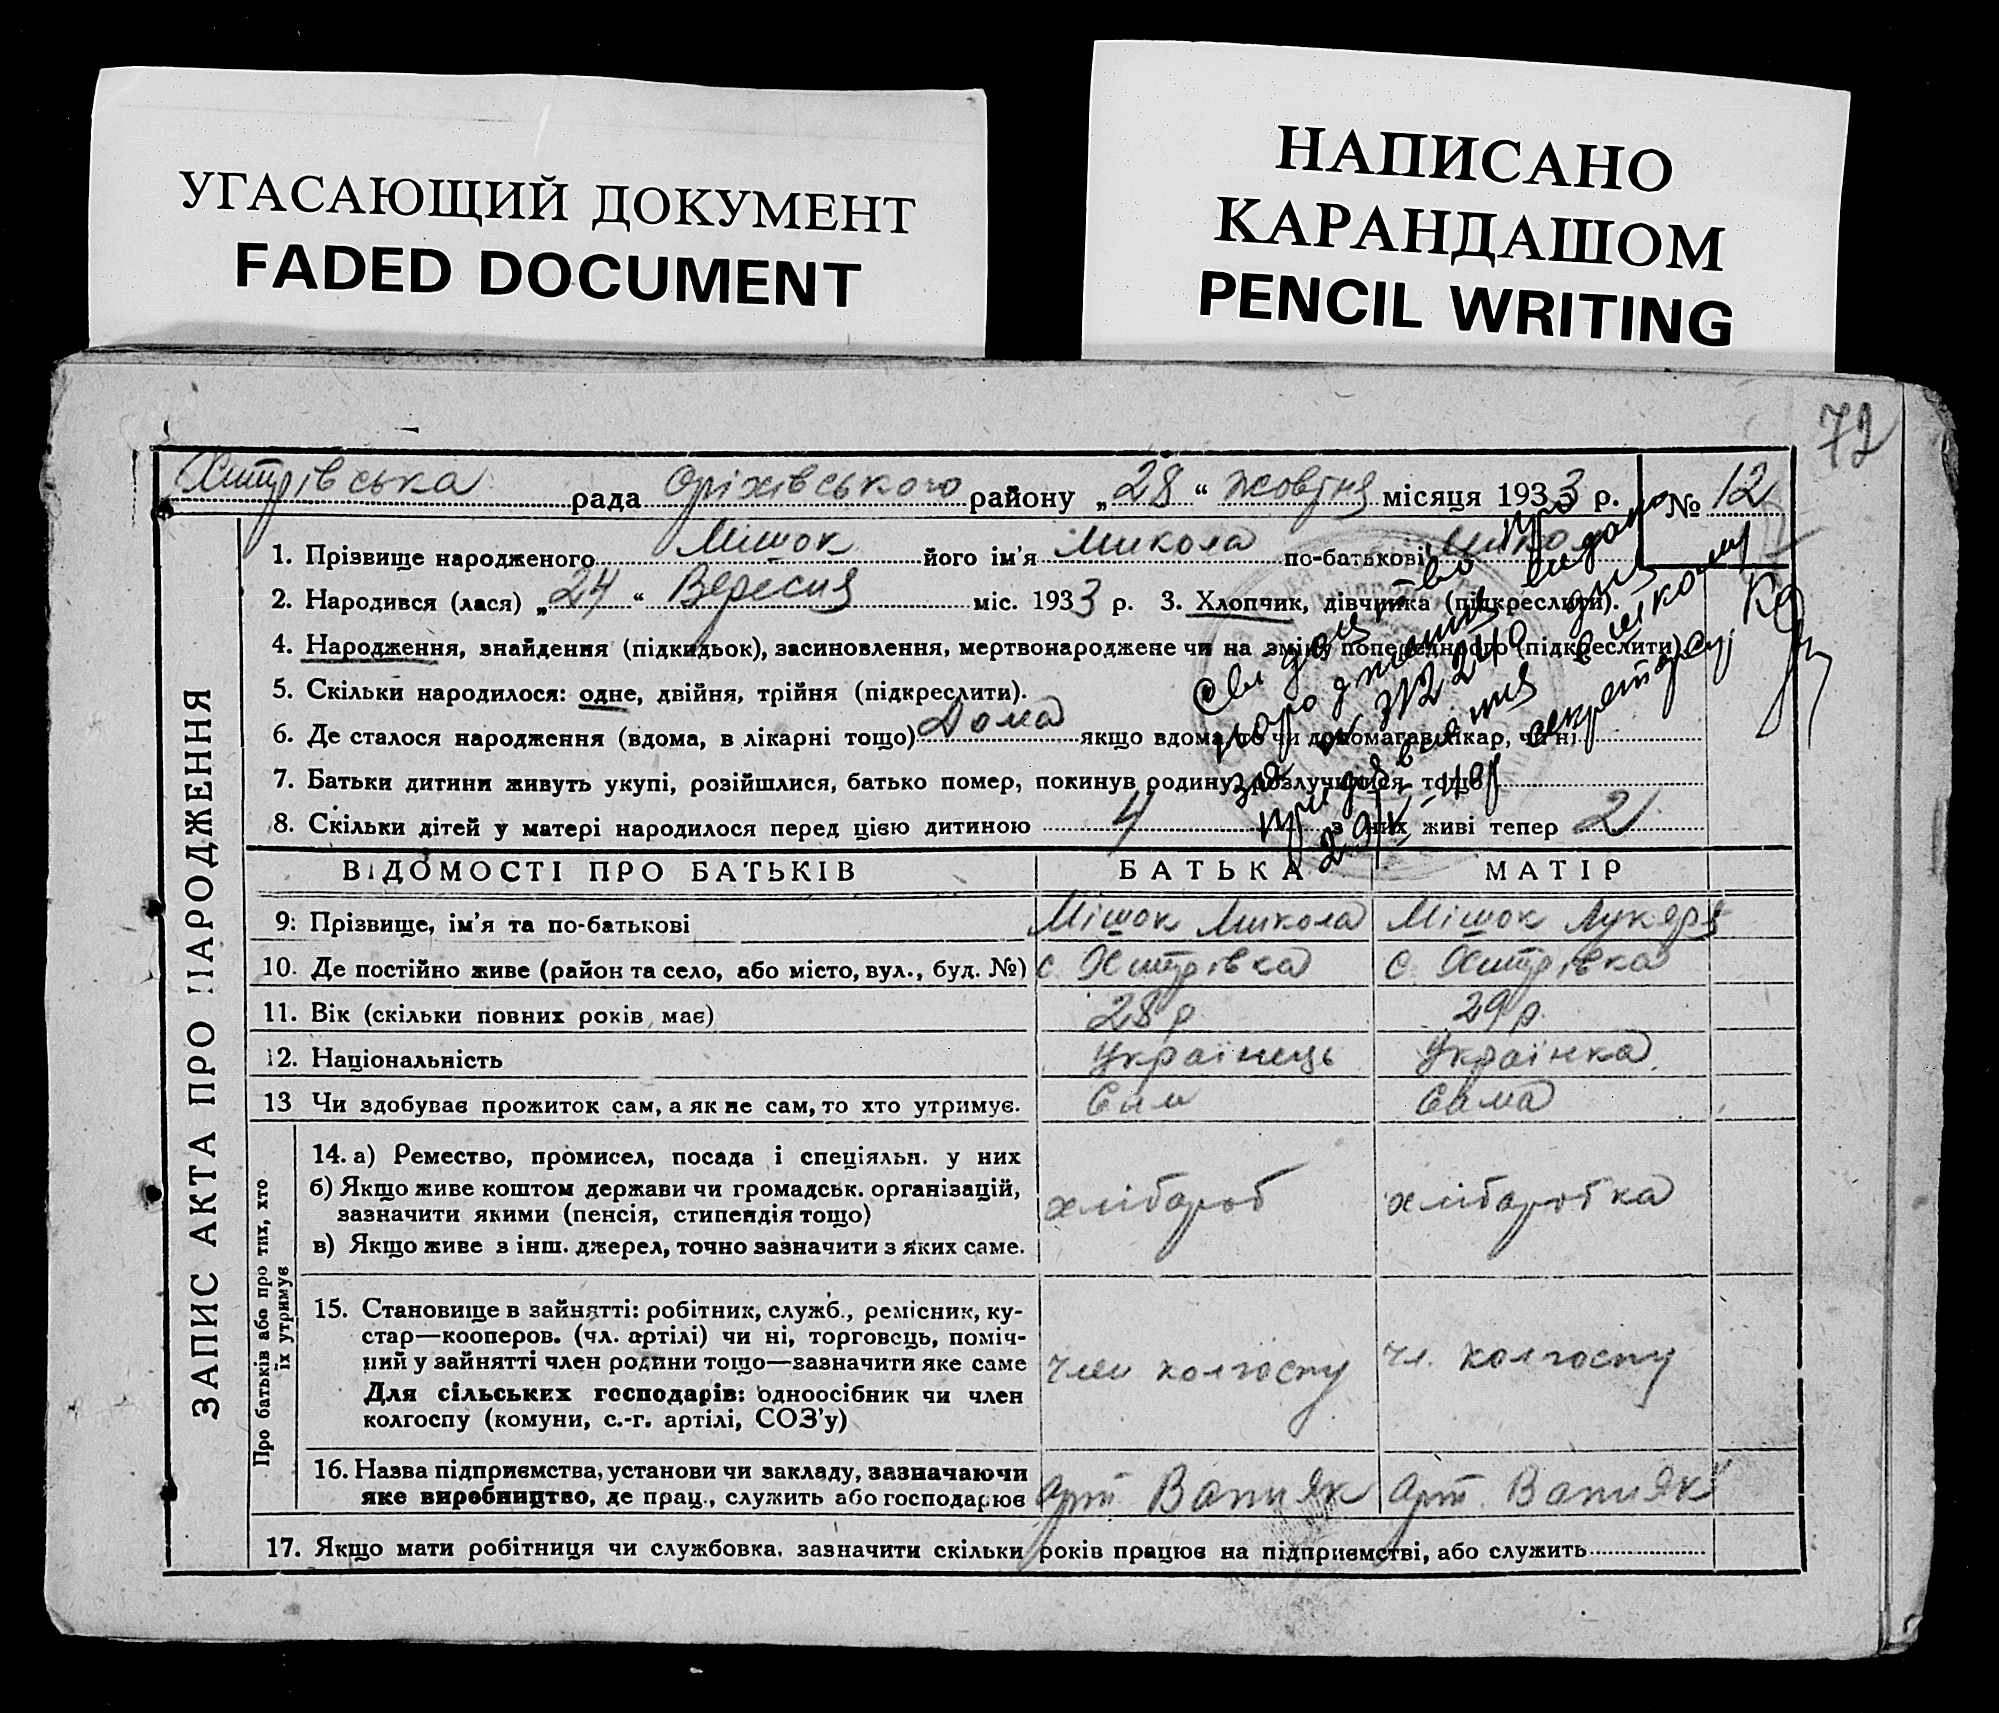 УГАСАЮЩИЙ ДОКУМЕНТ
FADED DOCUMENT
НАПИСАНО
КАРАНДАШОМ
PENCIL WRITING
72
Хитрівська рада Оріхівського району „28“ жовтня місяця 1933 р. № 12
ЗАПИС АКТА ПРО НАРОДЖЕННЯ
1. Прізвище народженого Мішок його ім'я Микола по-батькові Микол
2. Народився (лася) „24“ Вересня міс. 1933 р. 3. Хлопчик, дівчинка (підкреслити).
4. Народження, знайдення (підкидьок), засиновлення, мертвонароджене чи на зміну попереднього (підкреслити)
5. Скільки народилося: одне, двійня, трійня (підкреслити).
6. Де сталося народження (вдома, в лікарні тощо) Дома якщо вдома, то чи допомагав лікар, чи ні
7. Батьки дитини живуть укупі, розійшлися, батько помер, покинув родину, розлучилися, тощо
8. Скільки дітей у матері народилося перед цією дитиною 4 з них живі тепер 2
Свидоцтво про
народження видано
за № 312240 для
придявлення в школу
секретар
ВІДОМОСТІ ПРО БАТЬКІВ БАТЬКА МАТІР
9. Прізвище, ім'я та по-батькові Мішок Микола Мішок Лукеря
10. Де постійно живе (район та село, або місто, вул., буд. №) с. Хитрівка с. Хитрівка
11. Вік (скільки повних років має) 28 р 29 р.
12. Національність Українець Українка.
13 Чи здобуває прожиток сам, а як не сам, то хто утримує. Сам Сама
Про батьків або про тих, хто
їх утримує
14. а) Ремество, промисел, посада і спеціяльн. у них
б) Якщо живе коштом держави чи громадськ. організацій,
зазначити якими (пенсія, стипендія тощо)
в) Якщо живе з інш. джерел, точно зазначити з яких саме.
хлібароб хлібаробка
15. Становище в зайнятті: робітник, служб., ремісник, ку-
стар—кооперов. (чл. артілі) чи ні, торговець, поміч-
ний у зайнятті член родини тощо—зазначити яке саме
Для сільських господарів: одноосібник чи член
колгоспу (комуни, с.-г. артілі, СОЗ'у)
член колгоспу чл. колгоспу
16. Назва підприємства, установи чи закладу, зазначаючи
яке виробництво, де прац., служить або господарює
Арт. Вапняк Арт. Вапняк
17. Якщо мати робітниця чи службовка, зазначити скільки років працює на підприємстві, або служить